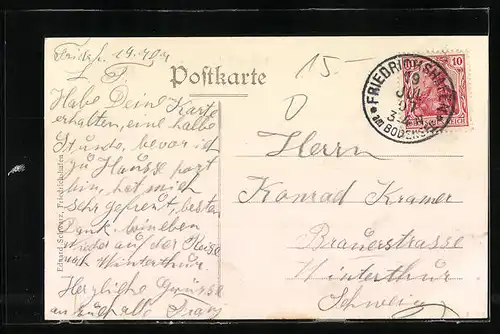 Friedr. 19.7.07
15.-
Postkarte
FRIEDRICHSHAFEN
19
JUL
07
3-4 N
am BODENSEE
10
REICH
Habe Deine Karte
erhalten, eine halbe
Stunde, bevor ich
zu Hause fort
bin, hat mich
sehr gefreut, besten
Dank. Bin eben
wieder auf der Reise
nach Winterthur
Herzliche Grüsse
an Euch alle Franz
Herrn
Konrad Kramer
Brauerstrasse
Winterthur
Schweiz
Eduard Schwarz, Friedrichshafen